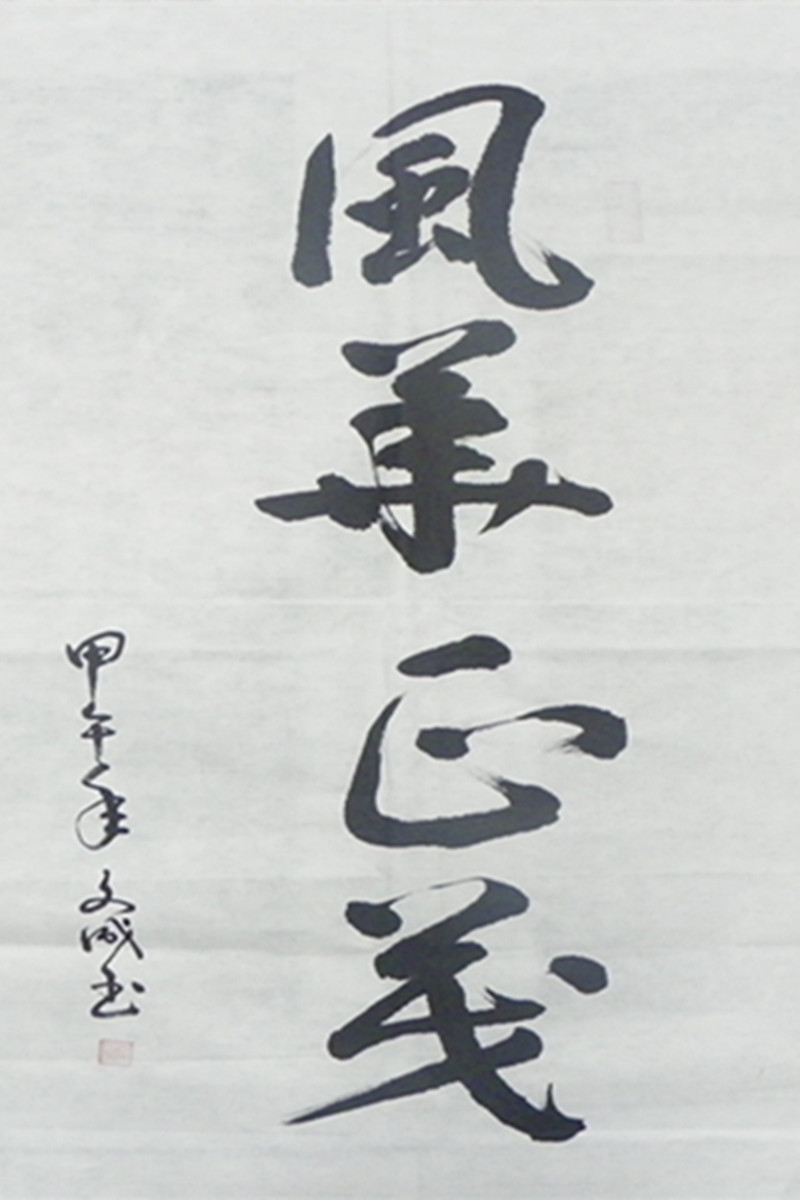 風華正茂
甲午年文成書